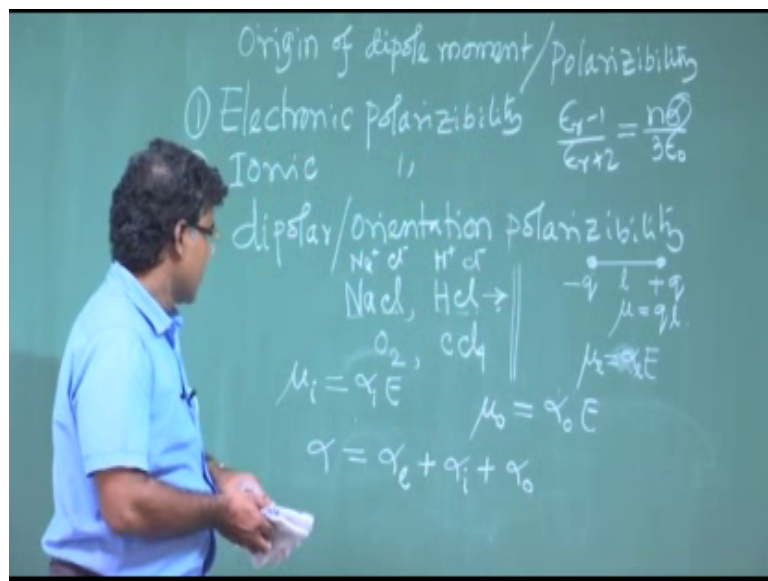 Origin of dipole moment/Polarizibility
① Electronic polarizibility
εr-1/εr+2 = nα/3ε₀
Ionic "
dipolar/orientation polarizibility
Na⁺ Cl⁻ H⁺ Cl⁻
NaCl, HCl →
-q l +q
μ = ql.
O₂, CCl₄
μₑ = αₑE
μᵢ = αᵢE
μ₀ = α₀E
α = αₑ + αᵢ + α₀